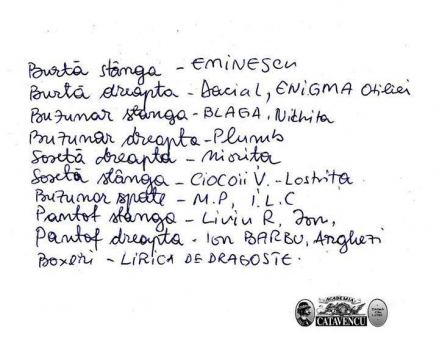 Burtă stânga - EMINESCU
Burtă dreapta - Dacia1, ENIGMA Otiliei
Buzunar stanga - BLAGA, Nichita
Buzunar dreapta - Plumb
Sosetă dreapta - Miorita
Sosetă stânga - CIOCOII V. - Lostrița
Buzunar spate - M.P, I.L.C
Pantof stanga - LIVIU R, Ion,
Pantof dreapta - ION BARBU, Arghezi
Boxeri - LIRICA DE DRAGOSTE.
ACADEMIA
CATAVENCU